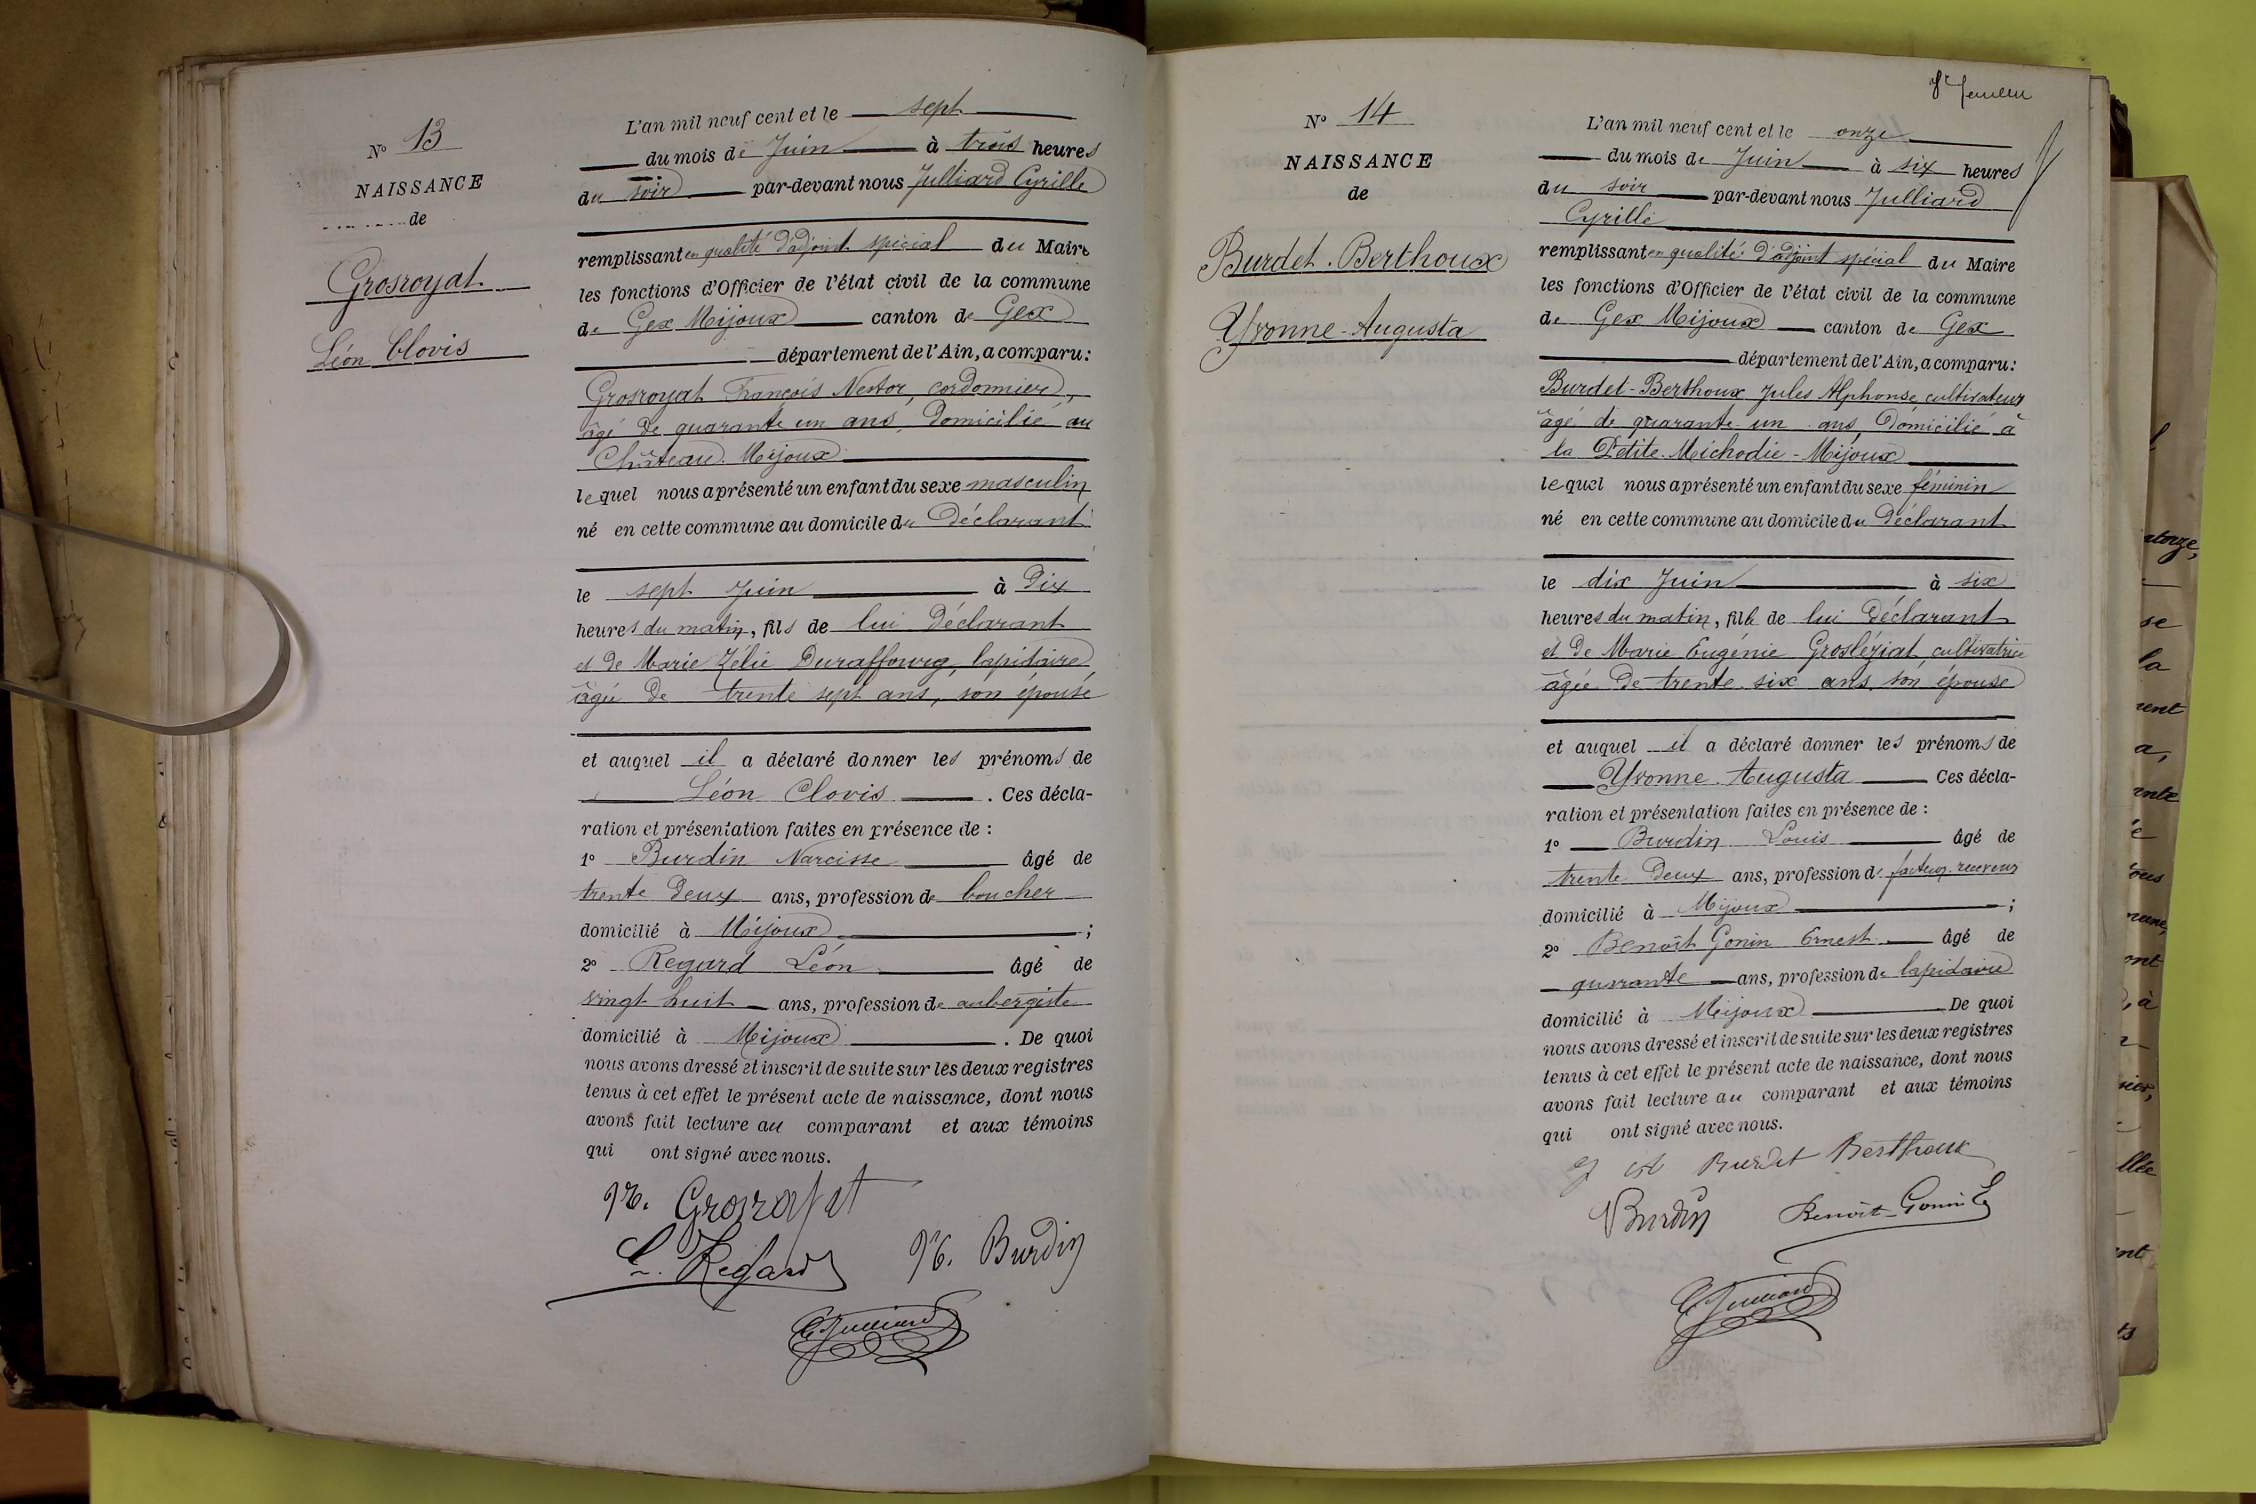 N° 13
NAISSANCE
de
Grosroyat
Léon Clovis
L'an mil neuf cent et le sept
du mois de Juin à trois heures
du soir par-devant nous Julliard Cyrille
remplissant en qualité d'adjoint spécial du Maire
les fonctions d'Officier de l'état civil de la commune
de Gex Mijoux canton de Gex
département de l'Ain, a comparu:
Grosroyat François Nestor, cordonnier,
âgé de quarante un ans, domicilié au
Château Mijoux
lequel nous a présenté un enfant du sexe masculin
né en cette commune au domicile du Déclarant
le sept Juin à Dix
heures du matin, fils de lui Déclarant
et de Marie Zélie Duraffourg, lapidaire,
âgée de trente sept ans, son épouse
et auquel il a déclaré donner les prénoms de
Léon Clovis . Ces décla-
ration et présentation faites en présence de :
1° Burdin Narcisse âgé de
trente deux ans, profession de boucher
domicilié à Mijoux ;
2° Regard Léon âgé de
vingt huit ans, profession de aubergiste
domicilié à Mijoux . De quoi
nous avons dressé et inscrit de suite sur les deux registres
tenus à cet effet le présent acte de naissance, dont nous
avons fait lecture au comparant et aux témoins
qui ont signé avec nous.
N. Grosroyat
L. Regard N. Burdin
C. Julliard
N° 14
NAISSANCE
de
Burdet-Berthoux
Yvonne-Augusta
L'an mil neuf cent et le onze
du mois de Juin à six heures
du soir par-devant nous Julliard
Cyrille
remplissant en qualité d'adjoint spécial du Maire
les fonctions d'Officier de l'état civil de la commune
de Gex Mijoux canton de Gex
département de l'Ain, a comparu:
Burdet-Berthoux Jules Alphonse, cultivateur
âgé de quarante-un ans, Domicilié à
la Petite Michodie-Mijoux
lequel nous a présenté un enfant du sexe féminin
né en cette commune au domicile du Déclarant
le dix Juin à six
heures du matin, fille de lui Déclarant
et de Marie Eugénie Grosléziat, cultivatrice
âgée de trente-six ans, son épouse
et auquel il a déclaré donner les prénoms de
Yvonne-Augusta Ces décla-
ration et présentation faites en présence de :
1° Burdin Louis âgé de
trente deux ans, profession de facteur receveur
domicilié à Mijoux ;
2° Benoît Gonin Ernest âgé de
quarante ans, profession de lapidaire
domicilié à Mijoux De quoi
nous avons dressé et inscrit de suite sur les deux registres
tenus à cet effet le présent acte de naissance, dont nous
avons fait lecture au comparant et aux témoins
qui ont signé avec nous.
Burdet Berthoux
Burdin Benoit-Gonin E
C. Julliard